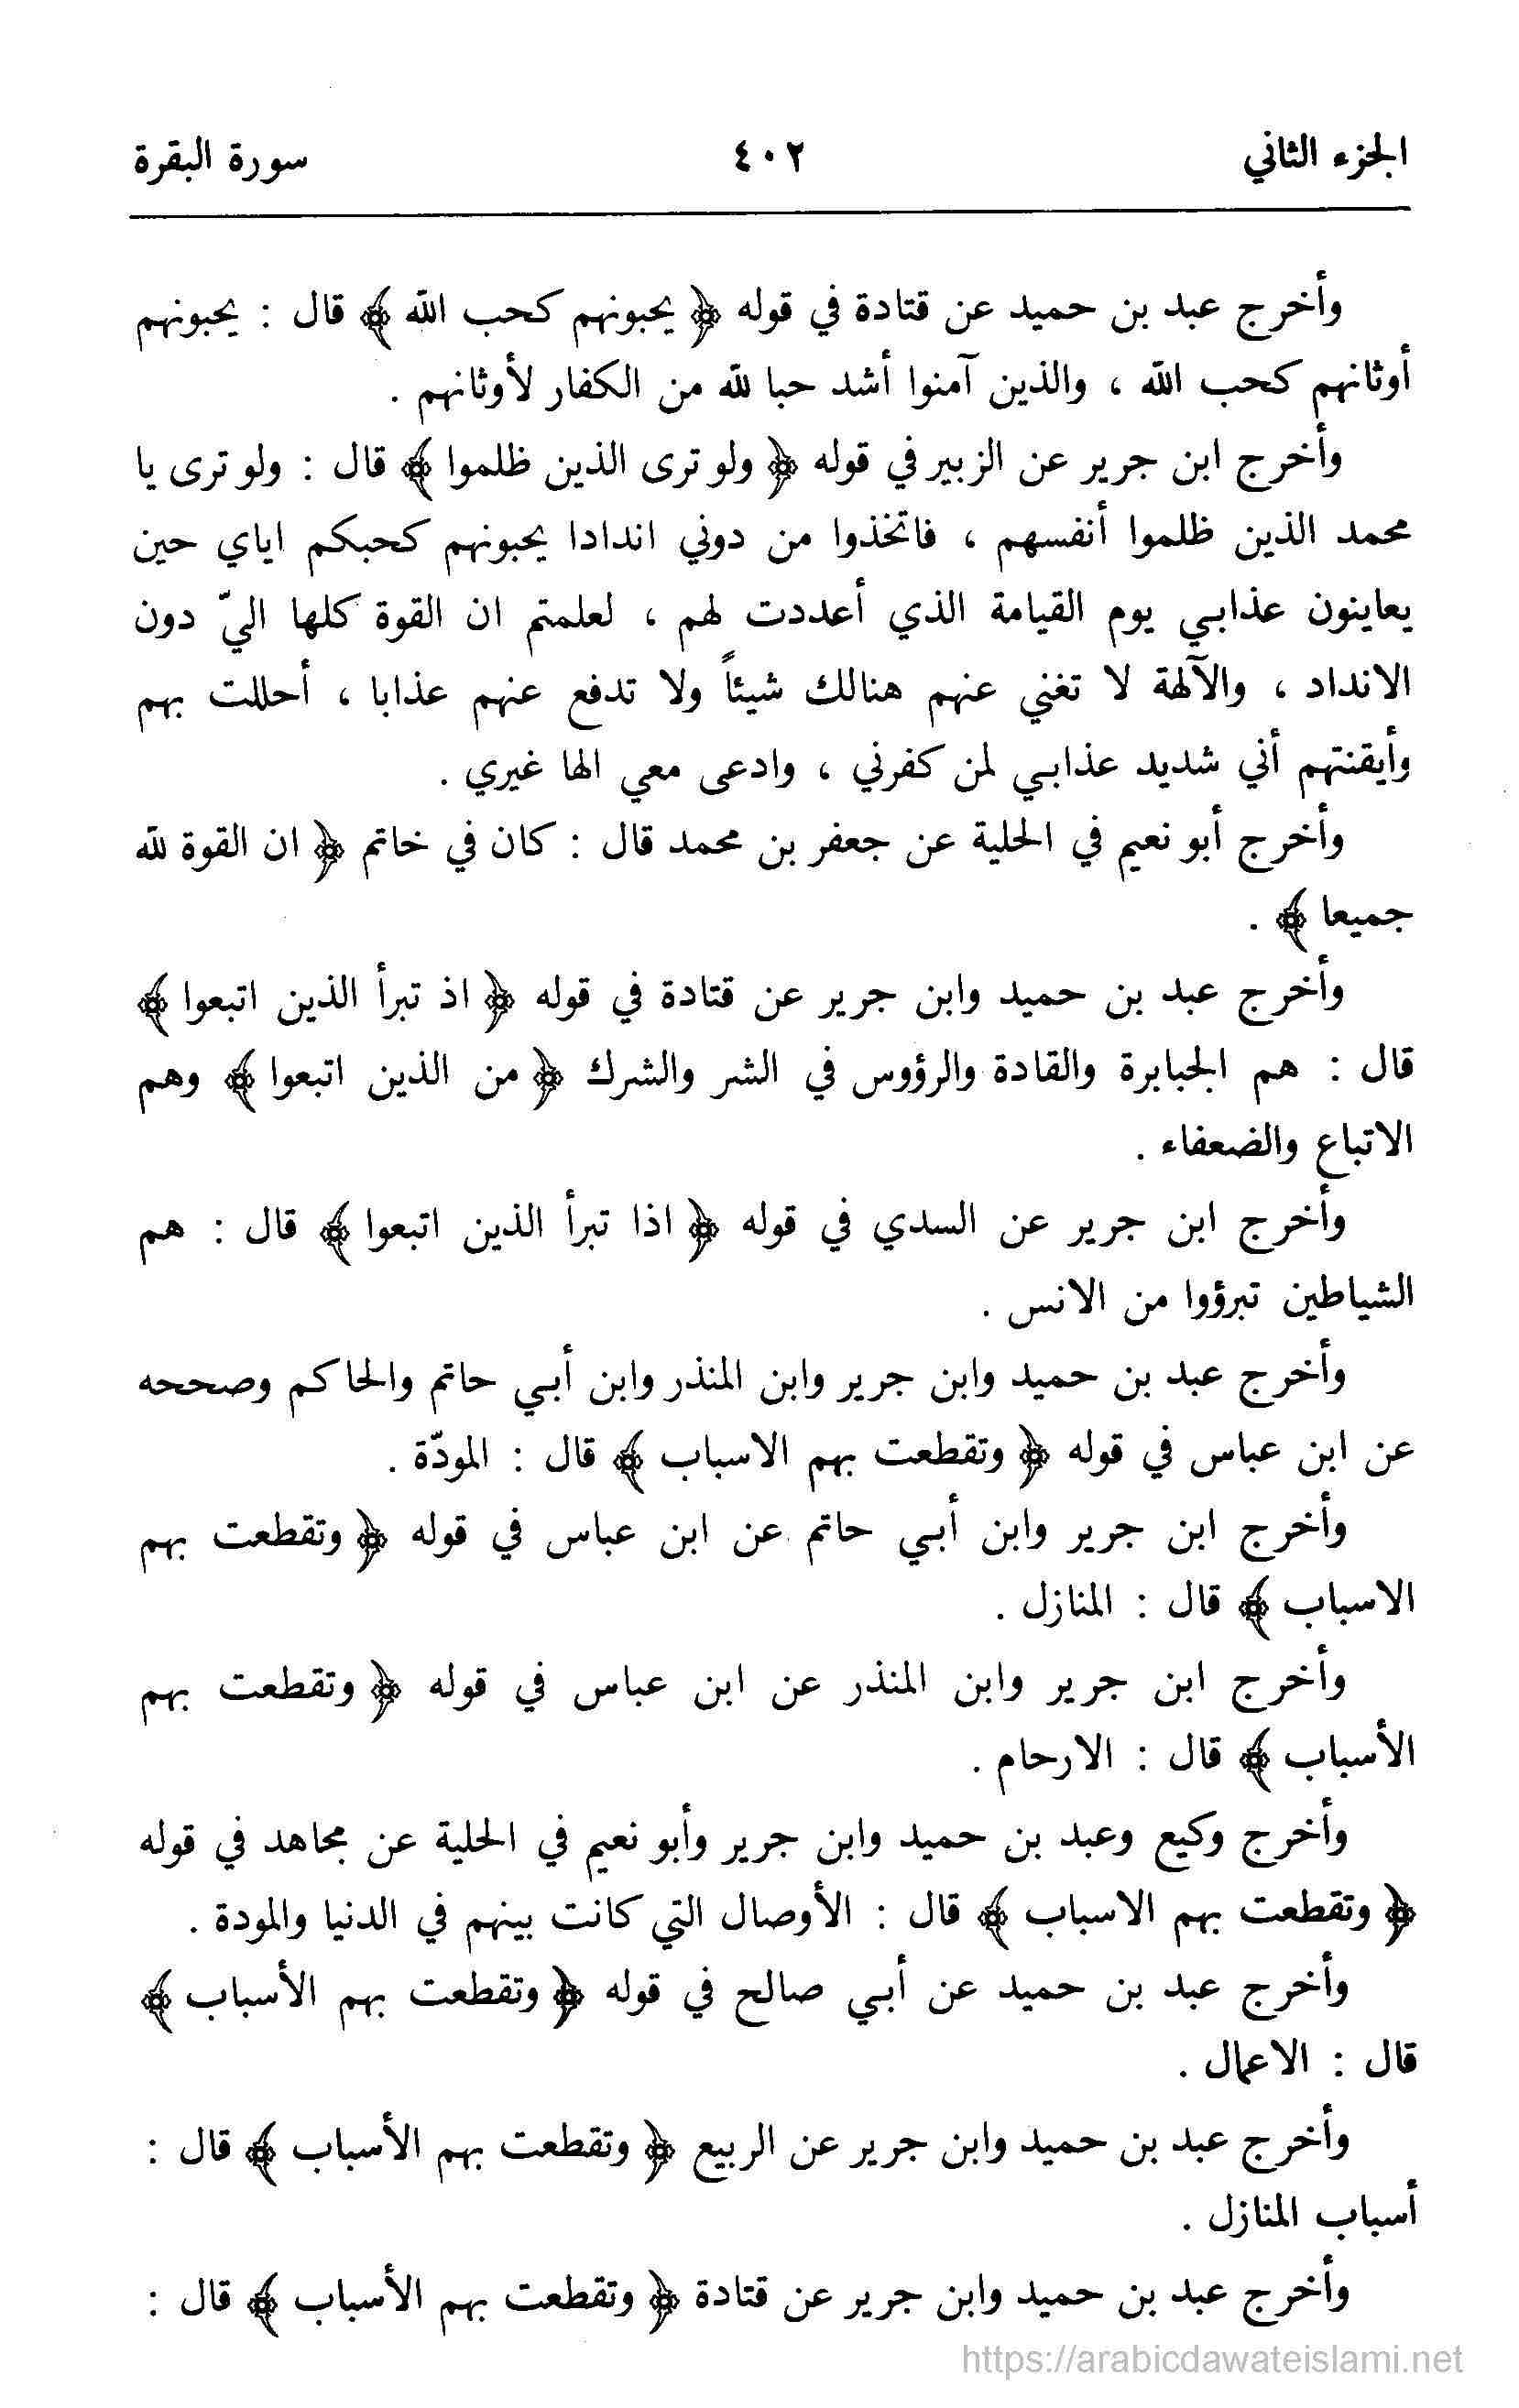 الجزء الثاني ٤٠٢ سورة البقرة
وأخرج عبد بن حميد عن قتادة في قوله ﴿ يحبونهم كحب الله ﴾ قال : يحبونهم
أوثانهم كحب الله ، والذين آمنوا أشد حبا لله من الكفار لأوثانهم .
وأخرج ابن جرير عن الزبير في قوله ﴿ ولو ترى الذين ظلموا ﴾ قال : ولو ترى يا
محمد الذين ظلموا أنفسهم ، فاتخذوا من دوني اندادا يحبونهم كحبكم اياي حين
يعاينون عذابي يوم القيامة الذي أعددت لهم ، لعلمتم ان القوة كلها اليّ دون
الانداد ، والآلهة لا تغني عنهم هنالك شيئاً ولا تدفع عنهم عذابا ، أحللت بهم
وأيقنتهم أني شديد عذابي لمن كفرني ، وادعى معي الها غيري .
وأخرج أبو نعيم في الحلية عن جعفر بن محمد قال : كان في خاتم ﴿ ان القوة لله
جميعا ﴾ .
وأخرج عبد بن حميد وابن جرير عن قتادة في قوله ﴿ اذ تبرأ الذين اتبعوا ﴾
قال : هم الجبابرة والقادة والرؤوس في الشر والشرك ﴿ من الذين اتبعوا ﴾ وهم
الاتباع والضعفاء .
وأخرج ابن جرير عن السدي في قوله ﴿ اذا تبرأ الذين اتبعوا ﴾ قال : هم
الشياطين تبرؤوا من الانس .
وأخرج عبد بن حميد وابن جرير وابن المنذر وابن أبي حاتم والحاكم وصححه
عن ابن عباس في قوله ﴿ وتقطعت بهم الاسباب ﴾ قال : المودّة .
وأخرج ابن جرير وابن أبي حاتم عن ابن عباس في قوله ﴿ وتقطعت بهم
الاسباب ﴾ قال : المنازل .
وأخرج ابن جرير وابن المنذر عن ابن عباس في قوله ﴿ وتقطعت بهم
الأسباب ﴾ قال : الارحام .
وأخرج وكيع وعبد بن حميد وابن جرير وأبو نعيم في الحلية عن مجاهد في قوله
﴿ وتقطعت بهم الاسباب ﴾ قال : الأوصال التي كانت بينهم في الدنيا والمودة .
وأخرج عبد بن حميد عن أبي صالح في قوله ﴿ وتقطعت بهم الأسباب ﴾
قال : الاعمال .
وأخرج عبد بن حميد وابن جرير عن الربيع ﴿ وتقطعت بهم الأسباب ﴾ قال :
أسباب المنازل .
وأخرج عبد بن حميد وابن جرير عن قتادة ﴿ وتقطعت بهم الأسباب ﴾ قال :
https://arabicdawateislami.net